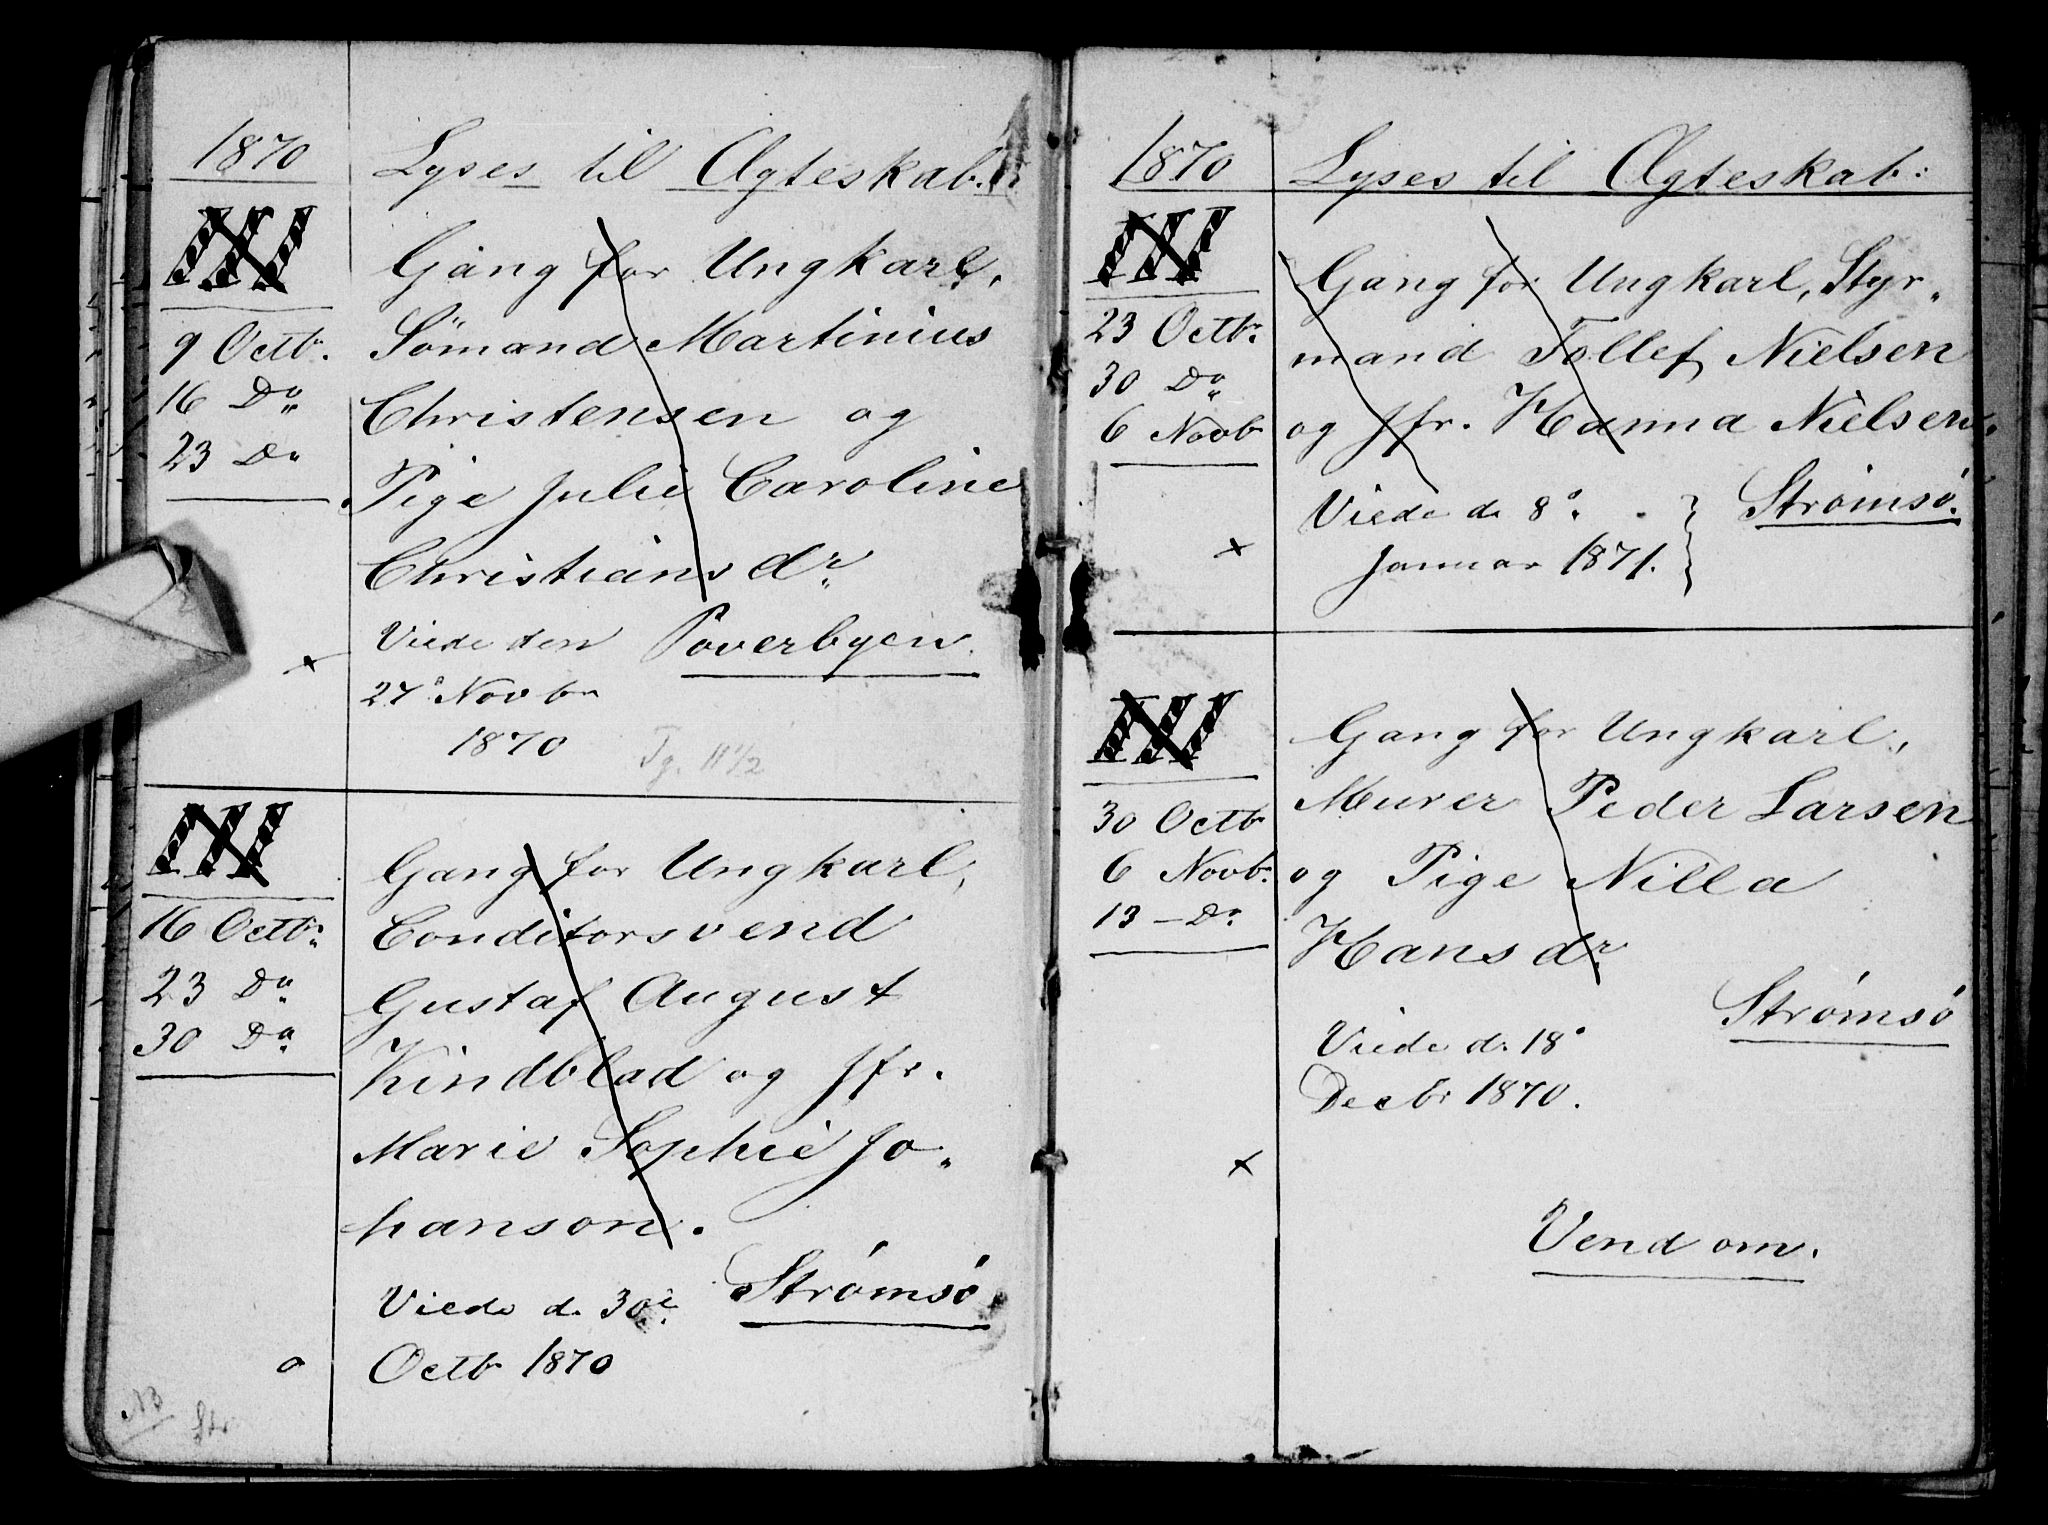 1870
Lyses til Ægteskab.
III
Gang for Ungkarl,
9 Octbr.
Sömand Martinius
16 Do
Christensen og
23 Do
Pige Julie Caroline
Christiansdr.
Viede den Poverbyen.
27d Novbr
1870
Tg. 11 1/2
III
Gang for Ungkarl,
16 Octbr.
Conditorsvend
23 Do
Gustaf August
30 Do
Kindblad og Jfr.
Marie Sophie Jo-
hanson.
Viede d. 30te Strømsø
Octb 1870
1870
Lyses til Ægteskab:
III
Gang for Ungkarl, Styr-
23 Octbr.
mand Tollef Nielsen
30 Do
6 Novb
og Jfr. Hanna Nielsen.
Viede d. 8d. Strömsö.
Januar 1871.
III
Gang for Ungkarl,
30 Octb
Murer Peder Larsen
6 Novb.
og Pige Nilla
13 - Do
Hansdr.
Strømsø
Viede d. 18d
Decbr 1870.
Vend om.